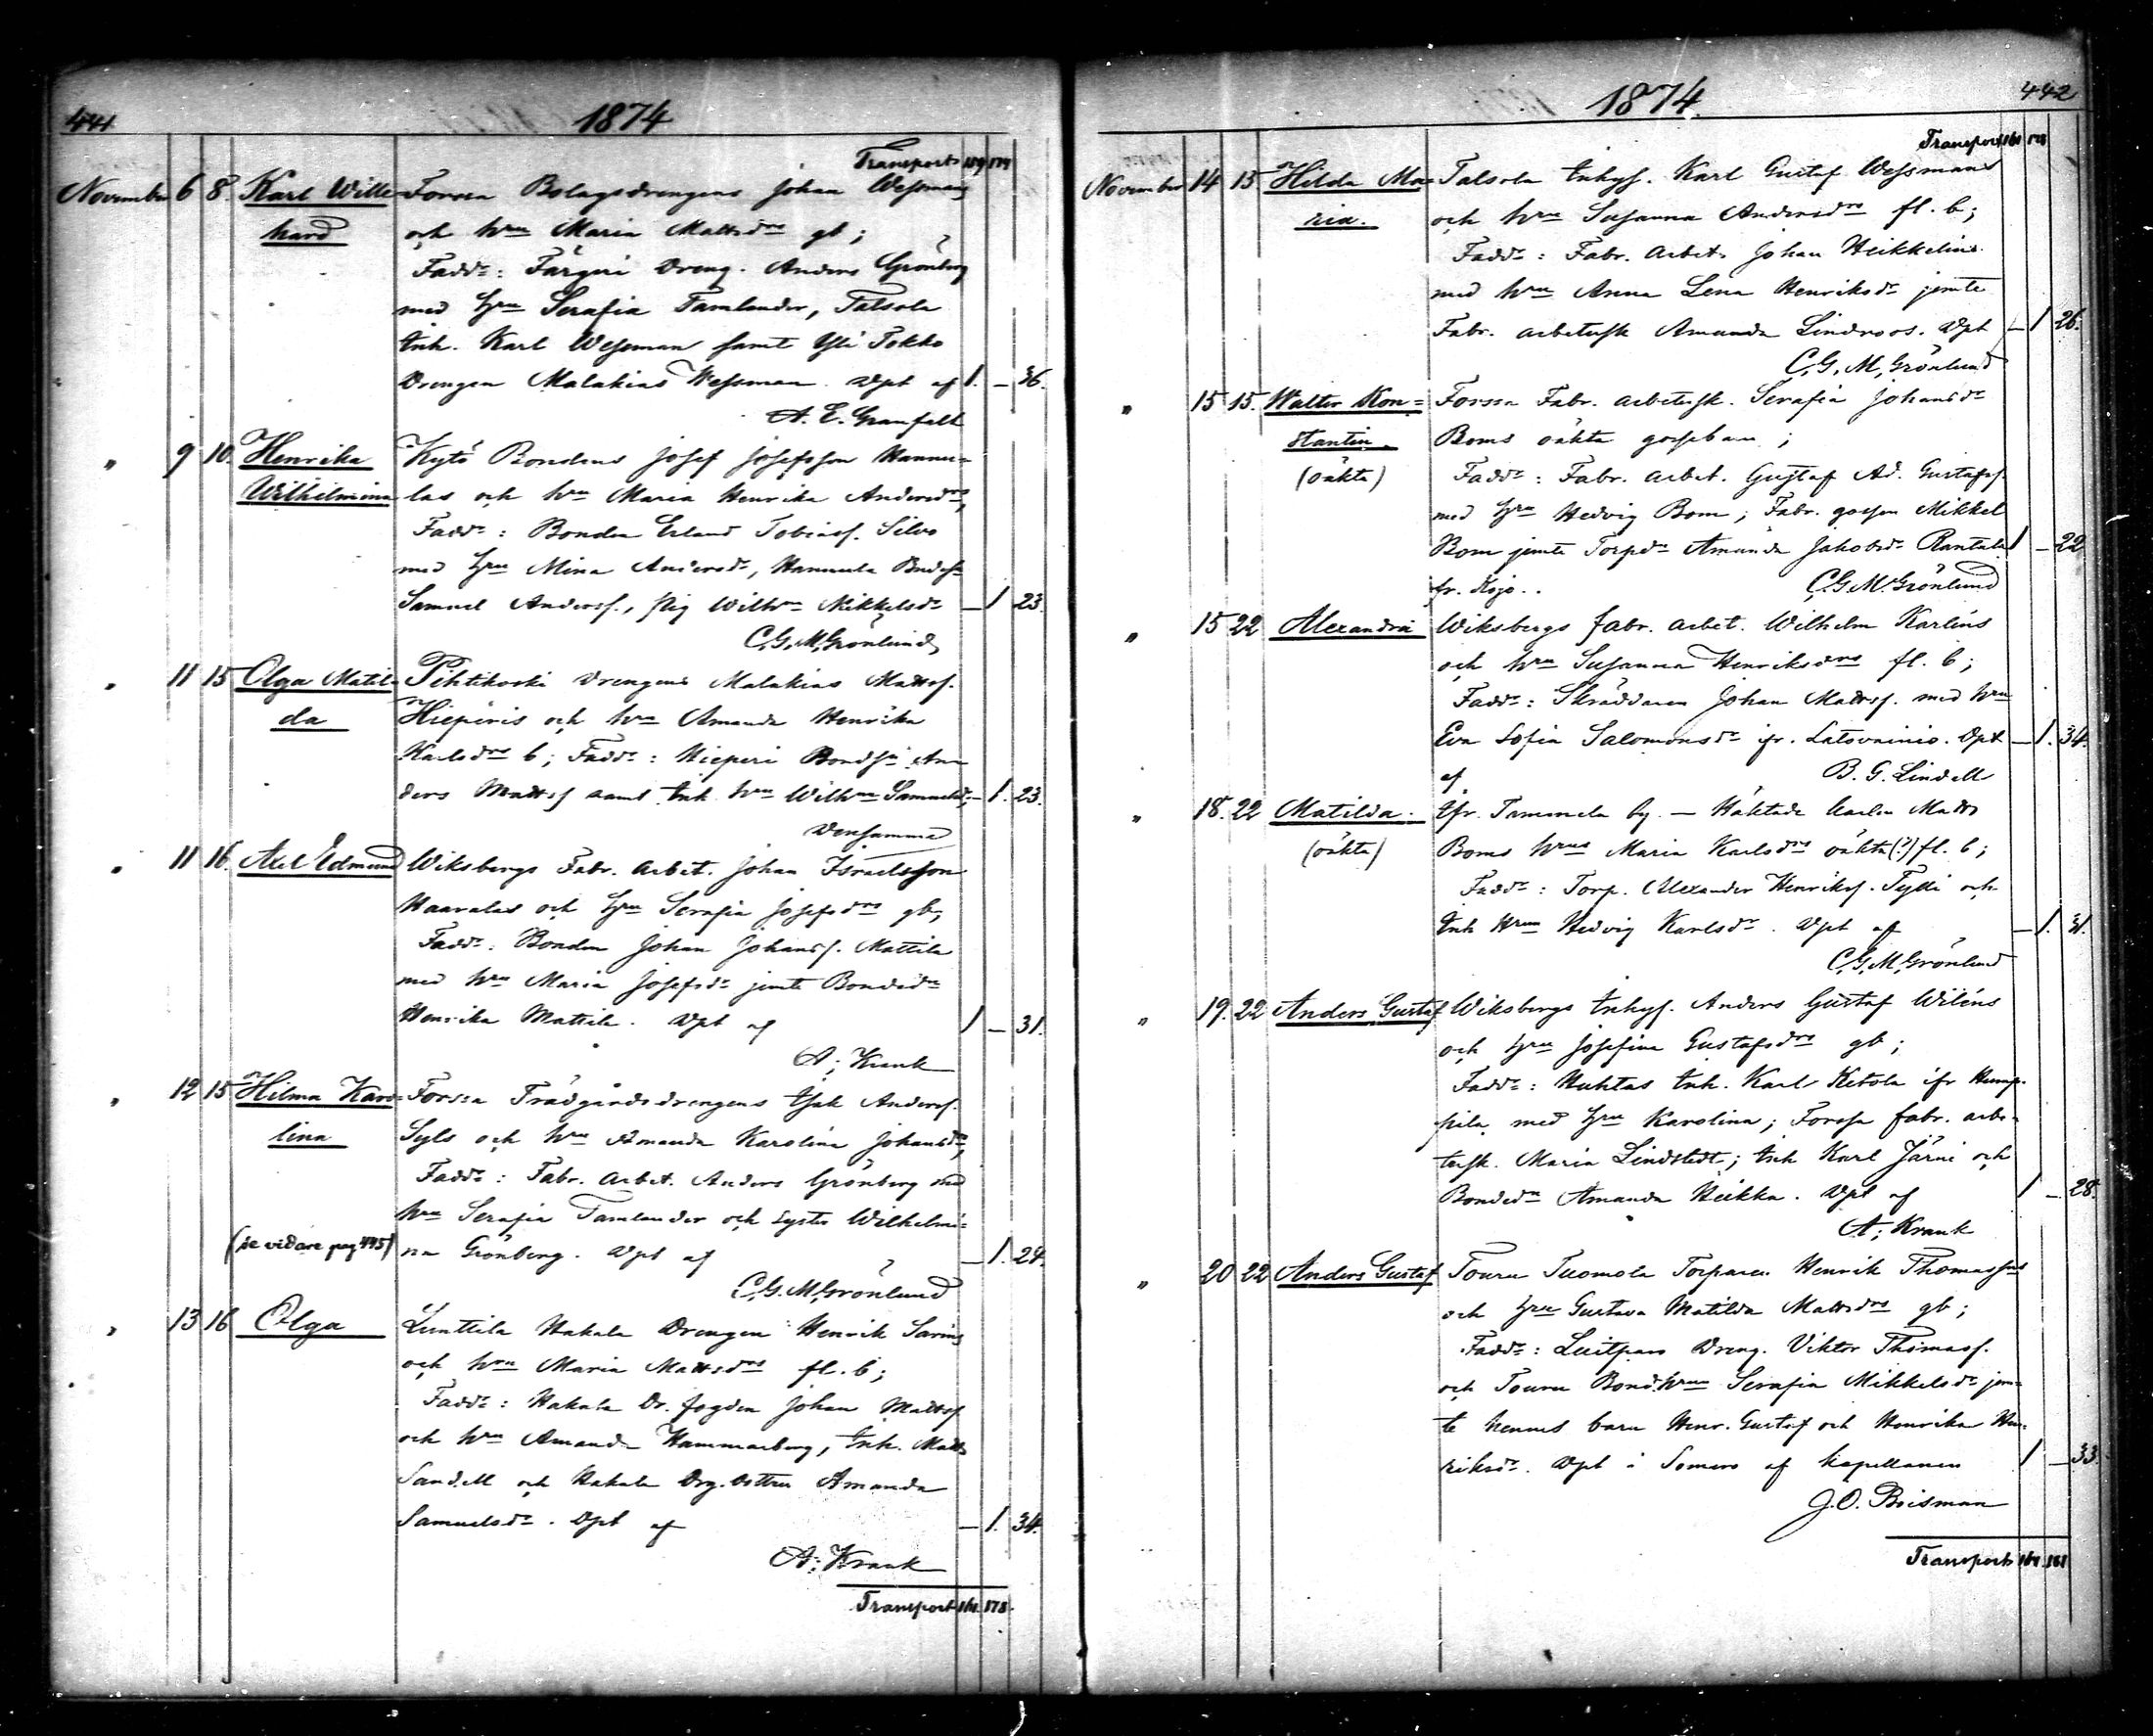 441
1874
Transport 159 174
November 6 8. Karl Wille- Forssa Bolagsdrengens Johan Wessmans
hard och hru Maria Mattsdrs gb;
Faddr: Färgeri Dreng. Anders Grönberg
med hru Serafia Tamlander, Talsola
Inh. Karl Wessman samt Yli Tokko
Drengen Malakias Wessman. Dpt af 1. – 36.
A. E. Granfelt
" 9 10. Henrika Kytö Bondens Josef Josefsson Hannu-
Wilhelmina las och hru Maria Henrika Andersdrs,
Faddr: Bonden Erland Tobiasf. Silvo
med hru Mina Andersdr, Hannula
Samuel Andersf., Pig Wilhna Mikkelsdr – 1 23.
C.G.M. Grönlund
" 11 15 Olga Matil- Pihtikoski Drengens Malakias Mattsf.
da Hieperis och hru Amanda Henrika
Karlsdrs b; Faddr: Hieperi Bondsn An-
ders Mattsf samt Inh. hru Wilhna Samuelsdr, – 1. 23.
Densamma
" 11 16. Axel Edmund Wiksbergs Fabr. Arbet. Johan Israelsson
Haavalas och hru Serafia Josefsdrs gb;
Faddr: Bonden Johan Johansf. Mattila
med hru Maria Josefsdr jemte Bondedr
Henrika Mattila. Dpt af 1 – 31.
A; Krank
" 12 15 Hilma Karo- Forssa Trädgårdsdrengens Isak Andersf.
lina Syls och hru Amanda Karolina Johansdrs,
Faddr: Fabr. Arbet. Anders Grönberg med
hru Serafia Tamlander och Syster Wilhelmi-
(se vidare pag 445) na Grönberg. Dpt af – 1. 24.
C.G.M. Grönlund
" 13 16 Olga Linttila Hakala Drengen Henrik Sarins
och hru Maria Mattsdrs fl. b;
Faddr: Hakala Dr. fogden Johan Mattsf.
och hru Amanda Hammarberg, Inh. Matts
Sandell och Hakala Drg. dottren Amanda
Samuelsdr. Dpt af – 1. 34.
A; Krank
Transport 161 178.
442
1874.
Transport 161 178
November 14 15 Hilda Ma- Talsola Inhys. Karl Gustaf Wessmans
ria. och hru Susanna Andersdrs fl. b;
Faddr: Fabr. Arbet. Johan Heikkelins
med hru Anna Lena Henriksdr jemte
Fabr. arbetersk Amanda Lindroos. Dpt – 1 26.
C.G.M. Grönlund
" 15 15. Walter Kon= Forssa Fabr. arbetersk. Serafia Johansdr
stantin. Boms oäkta gossebarn;
(oäkta) Faddr: Fabr. arbet. Gustaf Ad. Gustafsf.
med hru Hedvig Bom; Fabr. gossen Mikkel
Bom jemte Torpdr Amanda Jakobsdr Rantala 1 – 22
fr. Kojo.. C.G.M. Grönlund
" 15 22 Alexandra Wiksbergs fabr. arbet. Wilhelm Karlins
och hru Susanna Henriksdrs fl. b;
Faddr: Skräddaren Johan Mattsf. med hru
Eva Sofia Salomonsdr ifr. Latovainio. Dpt – 1. 34.
af B. G. Lindell
" 18. 22 Matilda. Ifr. Tammela by. – Häktade karlen Matts
(oäkta) Boms hrus Maria Karlsdrs oäkta(?) fl. b;
Faddr: Torp. Alexander Henriksf. Tylli och
Inh Hrun Hedvig Karlsdr. Dpt af – 1. 31.
C.G.M. Grönlund
" 19. 22 Anders Gustaf Wiksbergs Inhys. Anders Gustaf Wiléns
och hru Josefina Gustafsdrs gb;
Faddr: Huhtas Inh. Karl Ketola ifr Hump-
pila med hru Karolina; Forssa fabr. arbe-
tersk. Maria Lindstedt; Inh Karl Järvi och
Bondedr Amanda Heikka. Dpt af 1 – 28.
A; Krank
" 20 22 Anders Gustaf Touru Tuomola Torparen Henrik Thomassons
och hru Gustava Matilda Mattsdrs gb;
Faddr: Dreng. Viktor Thomasf.
och Touru Bond.hrun Serafia Mikkelsdr jem-
te hennes barn Henr. Gustaf och Henrika Hen-
riksdr. Dpt i Somero af kapellanen 1 – 33
J. O. Brisman
Transport 164 181